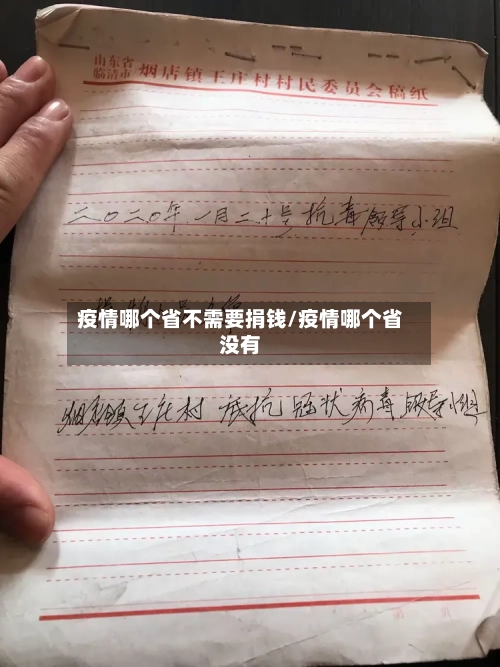 山东省
临清市 烟店镇王庄村村民委员会稿纸
二〇二〇年一月二十号抗毒领导小组
疫情哪个省不需要捐钱/疫情哪个省
没有
烟店镇王庄村 抵抗冠状病毒领导小组